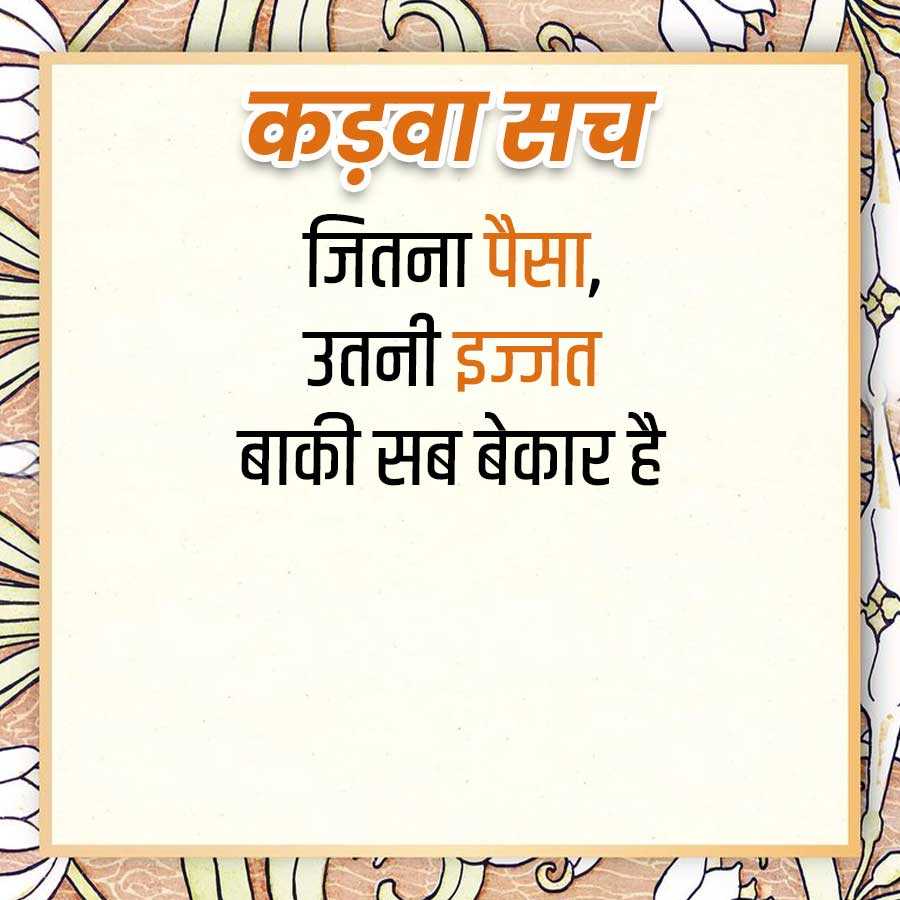 कड़वा सच
जितना पैसा,
उतनी इज्जत
बाकी सब बेकार है